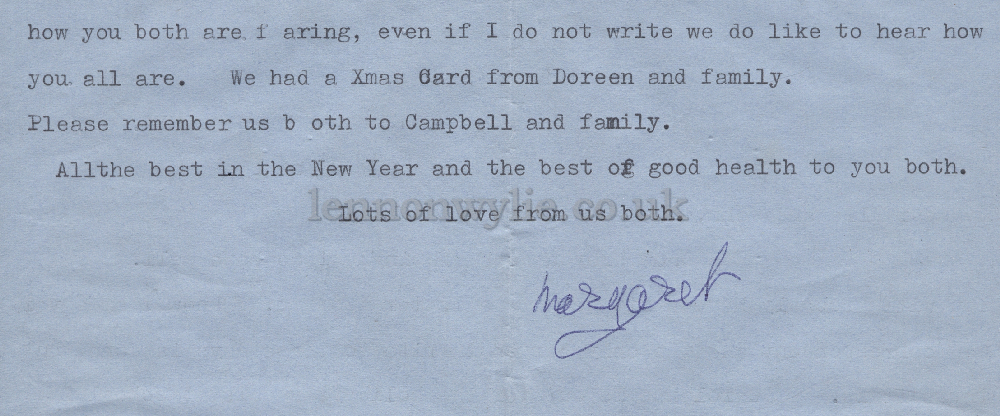 how you both are. f aring, even if I do not write we do like to hear how
you. all are. We had a Xmas Card from Doreen and family.
Please remember us b oth to Campbell and family.
Allthe best in the New Year and the best of good health to you both.
lennonwylie.co.uk
Lots of love from us both.
Margaret